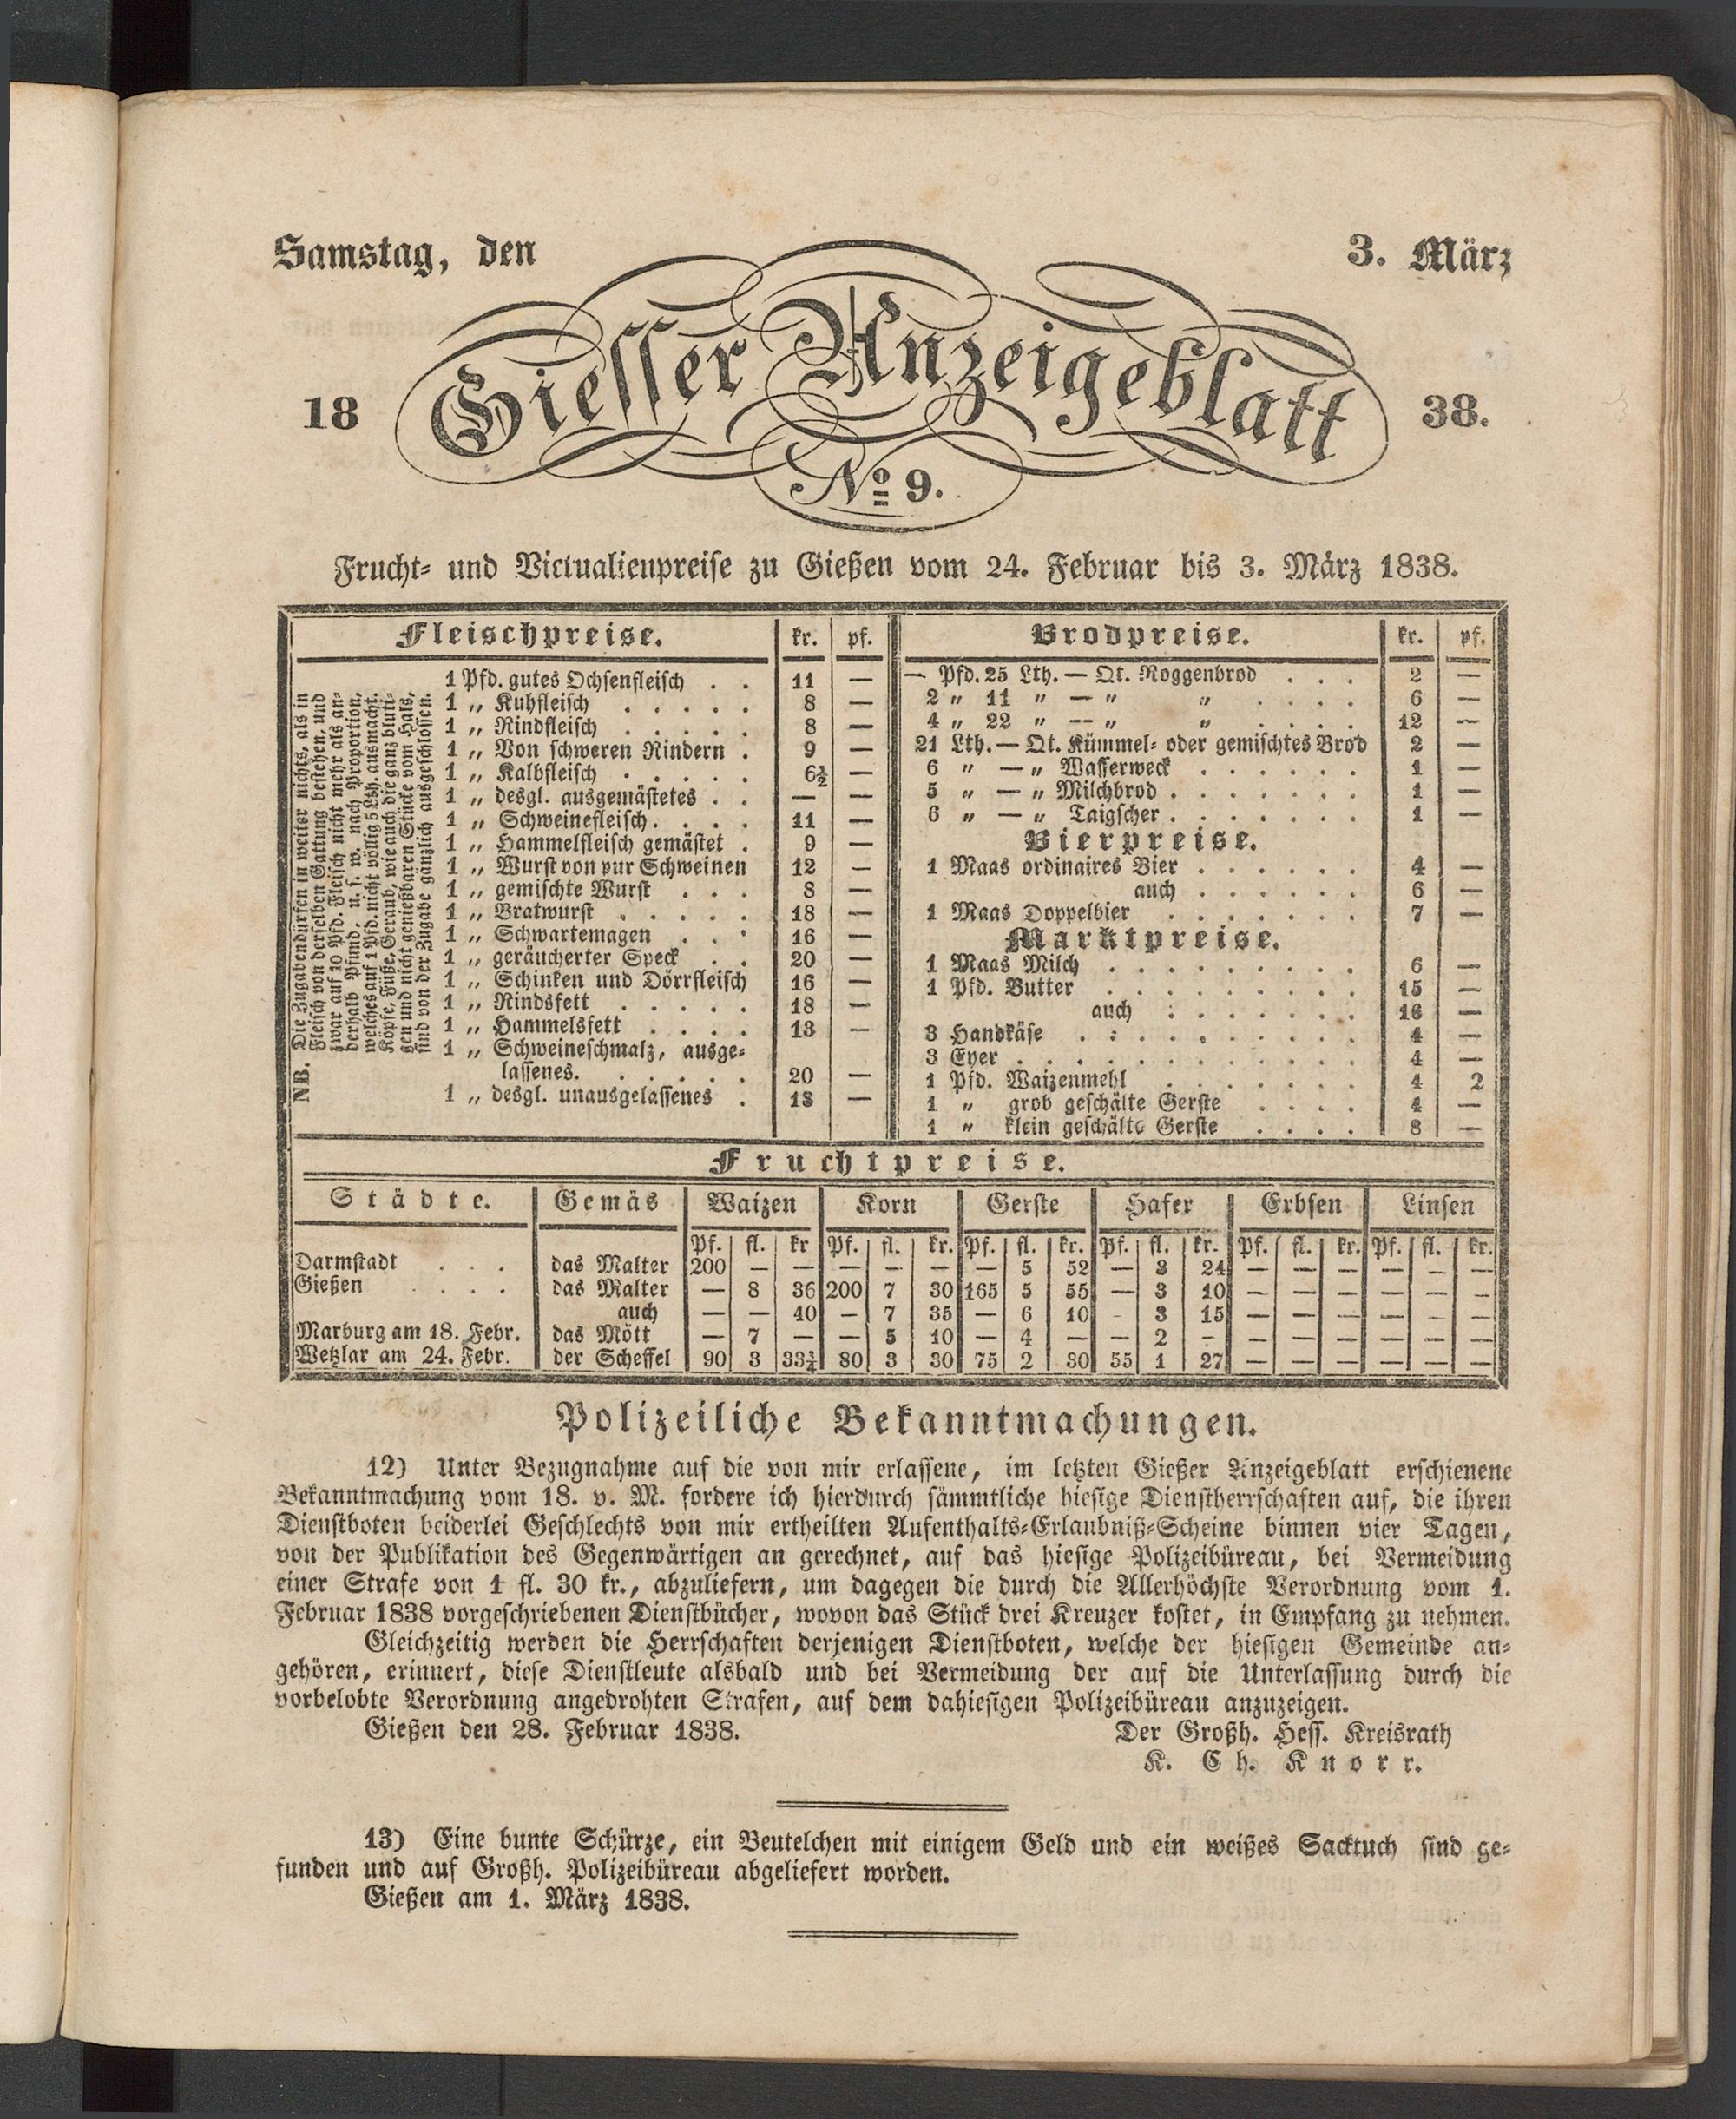 Samstag, den 3. März
18 Giesser Anzeigeblatt 38.
No 9.
Frucht- und Victualienpreise zu Gießen vom 24. Februar bis 3. März 1838.
Fleischpreise. kr. pf.
NB. Die Zugaben dürfen in weiter nichts, als in
Fleisch von derselben Gattung bestehen, und
zwar auf 10 Pfd. Fleisch nicht mehr als an-
derhalb Pfund. u. s. w. nach Proportion,
welches auf 1 Pfd. nicht völlig 5 Lth. ausmacht.
Köpfe, Füße, Geraub, wie auch die ganz bluti-
gen und nicht genießbaren Stücke vom Hals,
sind von der Zugabe gänzlich ausgeschlossen.
1 Pfd. gutes Ochsenfleisch . . 11 —
1 „ Kuhfleisch . . . . . 8 —
1 „ Rindfleisch . . . . . 8 —
1 „ Von schweren Rindern . 9 —
1 „ Kalbfleisch . . . . . 6½ —
1 „ desgl. ausgemästetes . . — —
1 „ Schweinefleisch . . . . 11 —
1 „ Hammelfleisch gemästet . 9 —
1 „ Wurst von pur Schweinen 12 —
1 „ gemischte Wurst . . . 8 —
1 „ Bratwurst . . . . . 18 —
1 „ Schwartemagen . . . 16 —
1 „ geräucherter Speck . . 20 —
1 „ Schinken und Dörrfleisch 16 —
1 „ Rindsfett . . . . . 18 —
1 „ Hammelsfett . . . . 13 —
1 „ Schweineschmalz, ausge-
lassenes. . . . . . 20 —
1 „ desgl. unausgelassenes . 18 —
Brodpreise. kr. pf.
— Pfd. 25 Lth. — Qt. Roggenbrod . . . 2 —
2 „ 11 „ — „ „ . . . . 6 —
4 „ 22 „ — „ „ . . . . 12 —
21 Lth. — Qt. Kümmel- oder gemischtes Brod 2 —
6 „ — „ Wasserweck . . . . . . 1 —
5 „ — „ Milchbrod . . . . . . . 1 —
6 „ — „ Taigscher . . . . . . . 1 —
Bierpreise.
1 Maas ordinaires Bier . . . . . . 4 —
auch . . . . . . 6 —
1 Maas Doppelbier . . . . . . . 7 —
Marktpreise.
1 Maas Milch . . . . . . . . . 6 —
1 Pfd. Butter . . . . . . . . . 15 —
auch . . . . . . . 16 —
3 Handkäse . . . . . . . . . . 4 —
3 Eyer . . . . . . . . . . . 4 —
1 Pfd. Waizenmehl . . . . . . . 4 2
1 „ grob geschälte Gerste . . . . 4 —
1 „ klein geschälte Gerste . . . . 8 —
Fruchtpreise.
Städte. Gemäs Waizen Korn Gerste Hafer Erbsen Linsen
Pf. fl. kr Pf. fl. kr. Pf. fl. kr. Pf. fl. kr. Pf. fl. kr. Pf. fl. kr.
Darmstadt . . . das Malter 200 — — — — — — 5 52 — 3 24 — — — — — —
Gießen . . . . das Malter — 8 36 200 7 30 165 5 55 — 3 10 — — — — — —
auch — — 40 — 7 35 — 6 10 - 3 15 — — — — — —
Marburg am 18. Febr. das Mött — 7 — — 5 10 — 4 — — 2 - — — — — — —
Wetzlar am 24. Febr. der Scheffel 90 3 33¾ 80 3 30 75 2 30 55 1 27 — — — — — —
Polizeiliche Bekanntmachungen.
12) Unter Bezugnahme auf die von mir erlassene, im letzten Gießer Anzeigeblatt erschienene
Bekanntmachung vom 18. v. M. fordere ich hierdurch sämmtliche hiesige Dienstherrschaften auf, die ihren
Dienstboten beiderlei Geschlechts von mir ertheilten Aufenthalts-Erlaubniß-Scheine binnen vier Tagen,
von der Publikation des Gegenwärtigen an gerechnet, auf das hiesige Polizeibüreau, bei Vermeidung
einer Strafe von 1 fl. 30 kr., abzuliefern, um dagegen die durch die Allerhöchste Verordnung vom 1.
Februar 1838 vorgeschriebenen Dienstbücher, wovon das Stück drei Kreuzer kostet, in Empfang zu nehmen.
Gleichzeitig werden die Herrschaften derjenigen Dienstboten, welche der hiesigen Gemeinde an-
gehören, erinnert, diese Dienstleute alsbald und bei Vermeidung der auf die Unterlassung durch die
vorbelobte Verordnung angedrohten Strafen, auf dem dahiesigen Polizeibüreau anzuzeigen.
Gießen den 28. Februar 1838. Der Großh. Hess. Kreisrath
K. Ch. Knorr.
13) Eine bunte Schürze, ein Beutelchen mit einigem Geld und ein weißes Sacktuch sind ge-
funden und auf Großh. Polizeibüreau abgeliefert worden.
Gießen am 1. März 1838.